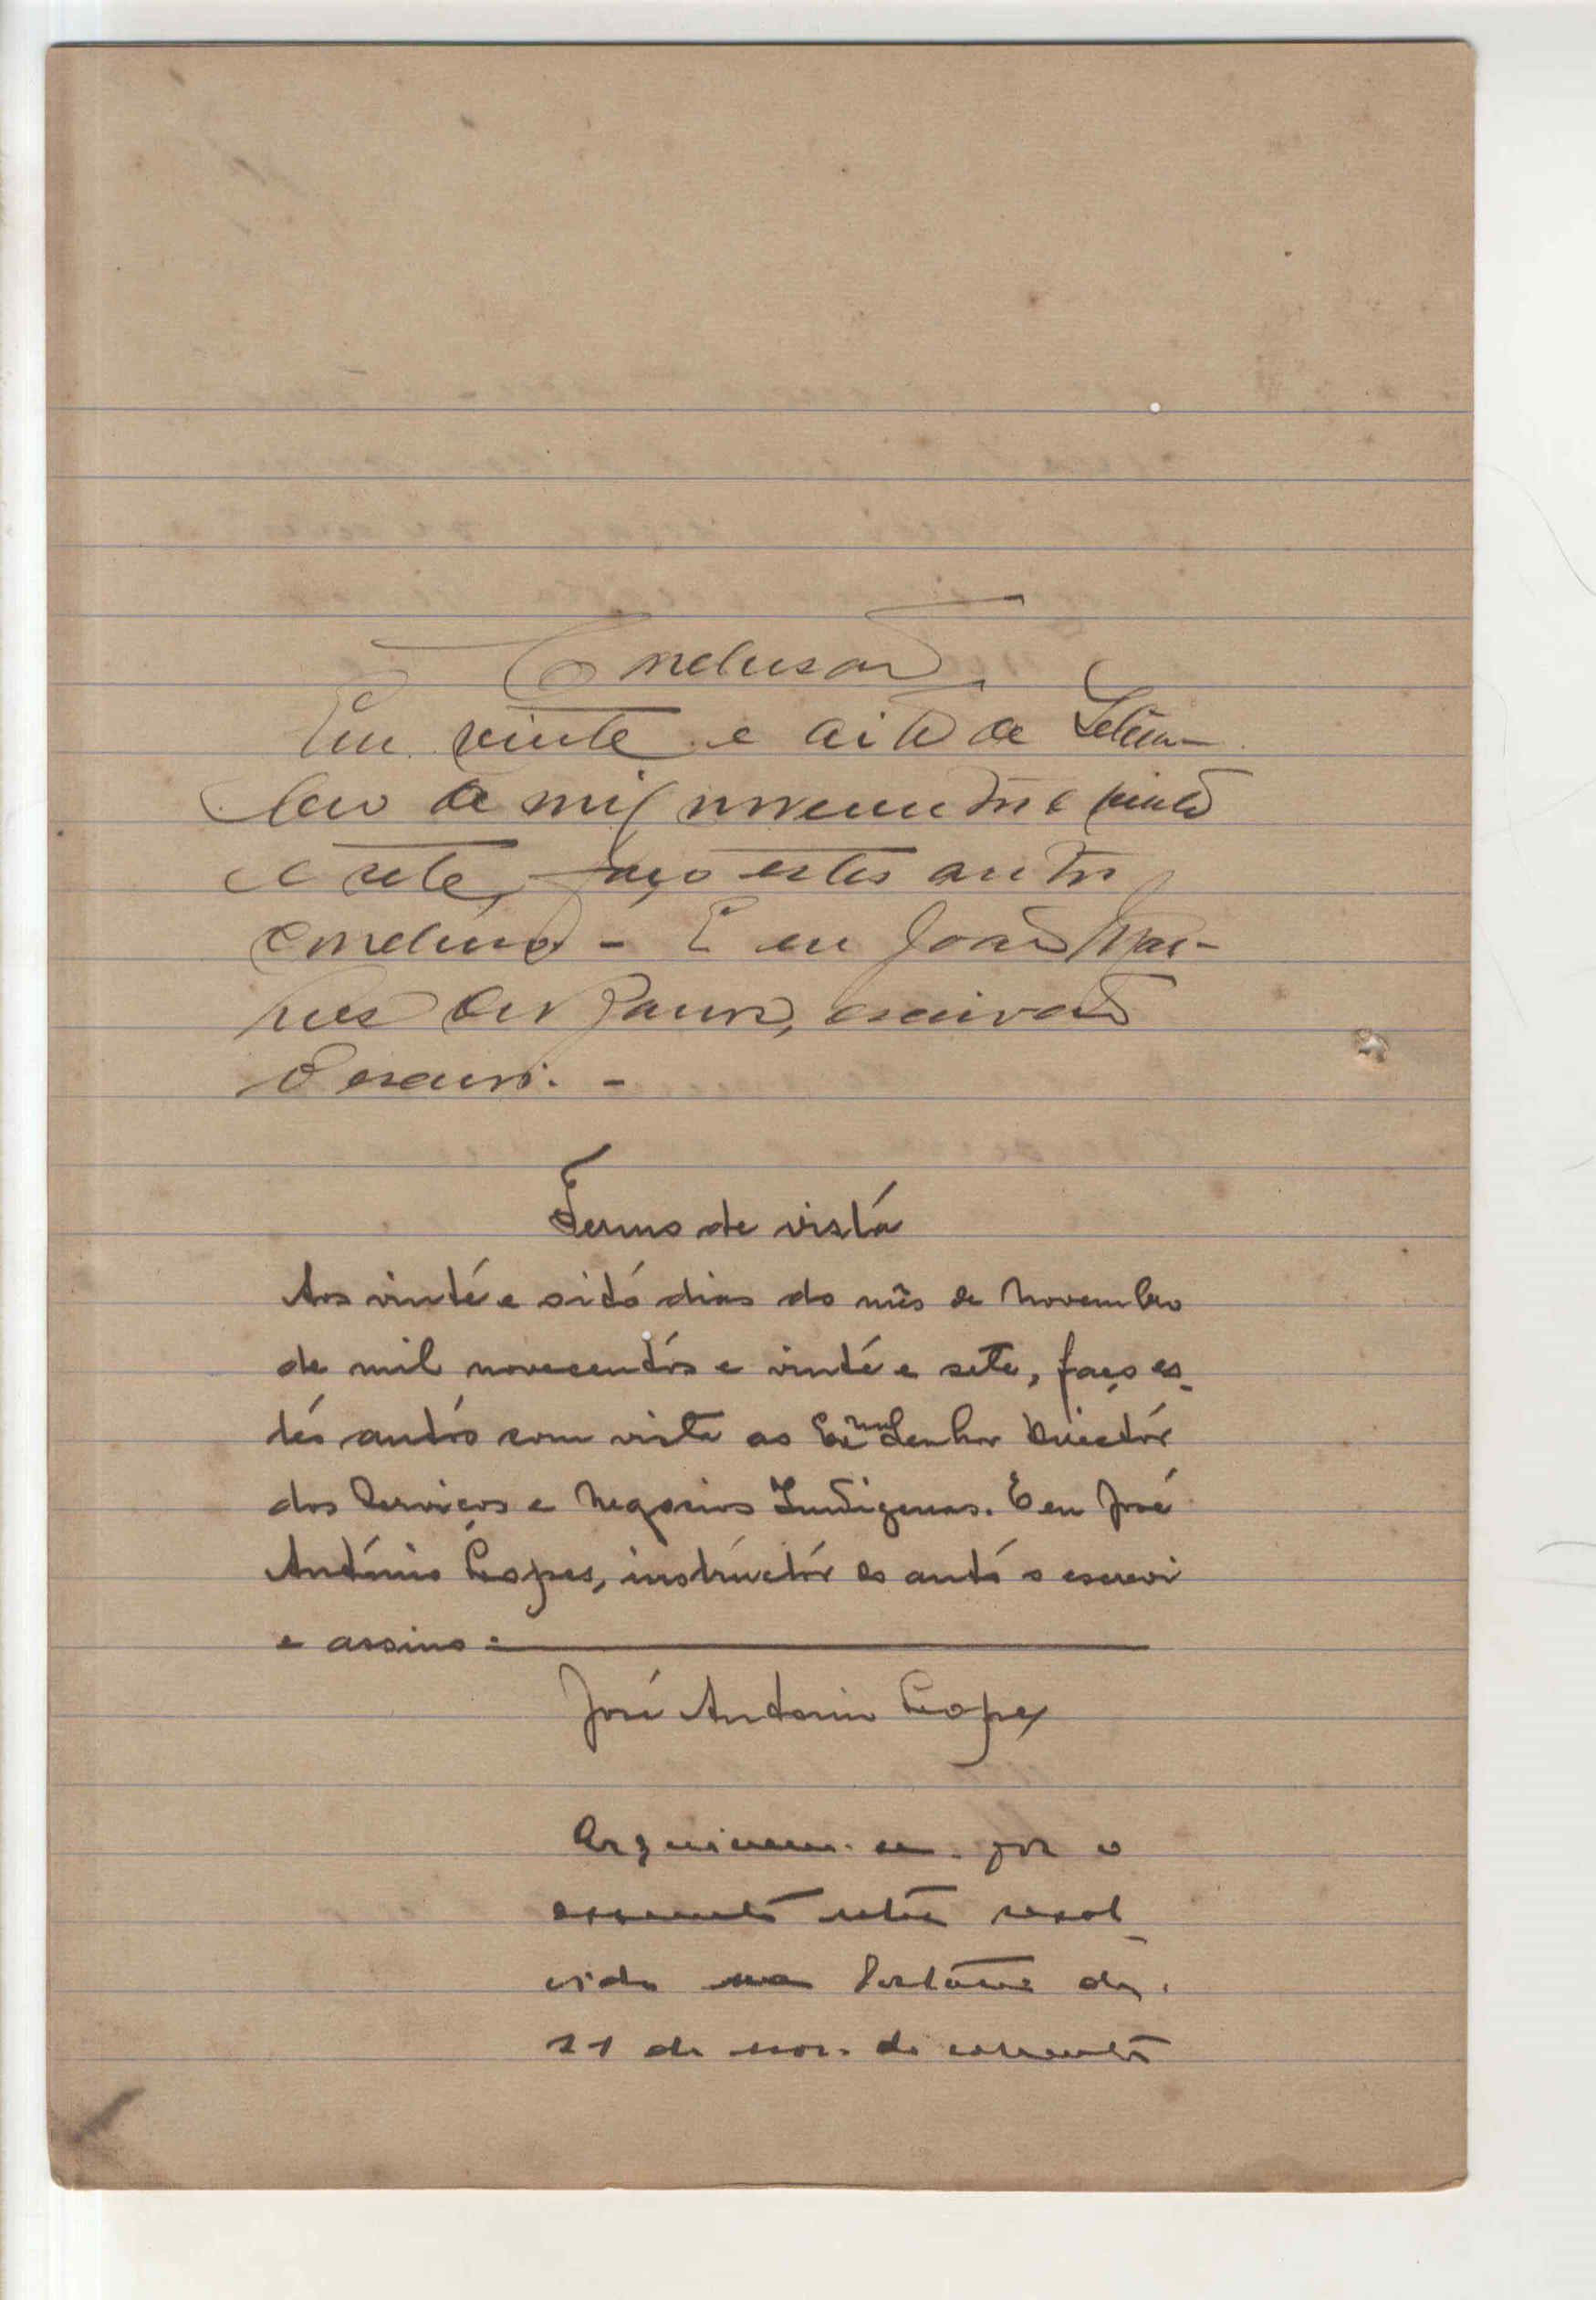 Conclusão
Em vinte e oito de Setem-
bro de mil novecentos e vinte
e sete, faço estes autos
conclusos - E eu João Mar-
ques escrivão
o escrevi. -
Termo de vista
Aos vinte e oito dias do mês de Novembro
de mil novecentos e vinte e sete, faço es-
tes autos com vista ao Exmo Senhor Director
dos Serviços e Negocios Indigenas. E eu José
António Lopes, instructor do auto o escrevi
e assino.
José Antonio Lopes
Arquivem-se por o
assumpto estar resol-
vido na Portaria de
21 de nov. do corrente